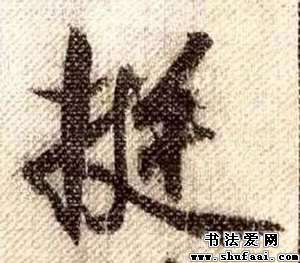 挺
书法爱网
www.shufaai.com